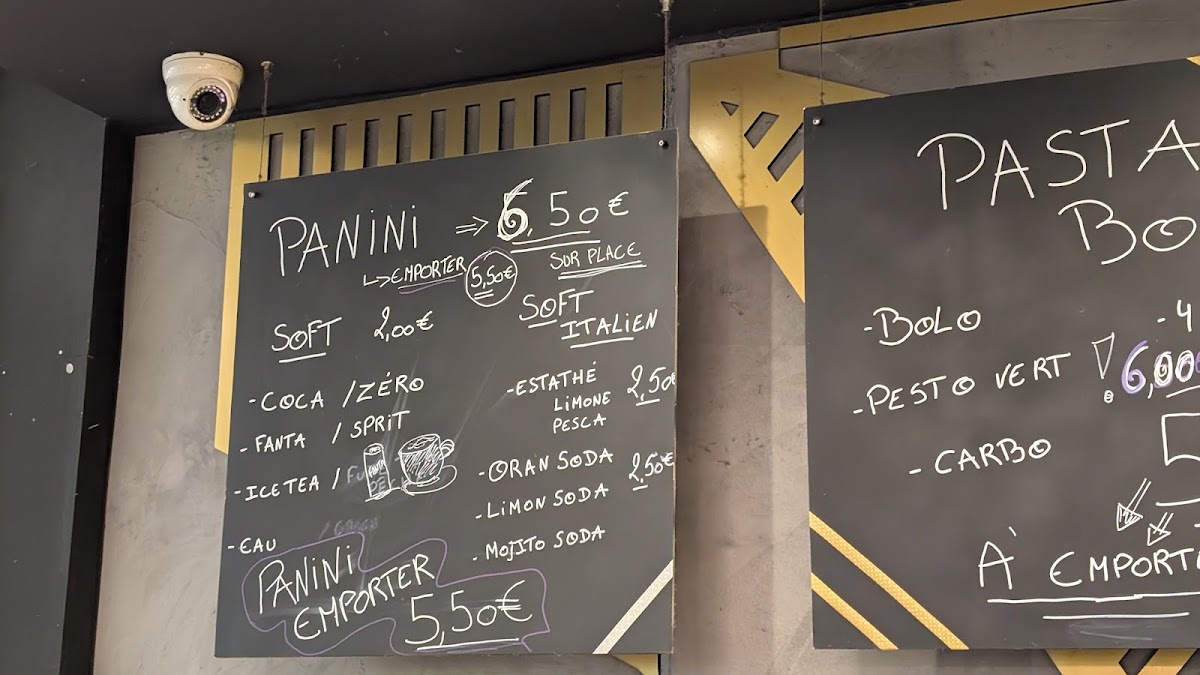 PANiNi ⇒ 6,50€
↳ EMPORTER 5,50€ SUR PLACE
SOFT 2,00€
- COCA / ZÉRO
- FANTA / SPRiT
- ICETEA /
- EAU
PANiNi
EMPORTER
5,50€
SOFT
ITALIEN
- ESTATHÉ 2,50€
LiMONE
PESCA
- ORAN SODA 2,50€
- LiMON SODA
- MOJiTO SODA
PASTA
BO
- BOLO
- PESTO VERT ! 6,00
- CARBO
- 4
À EMPORT